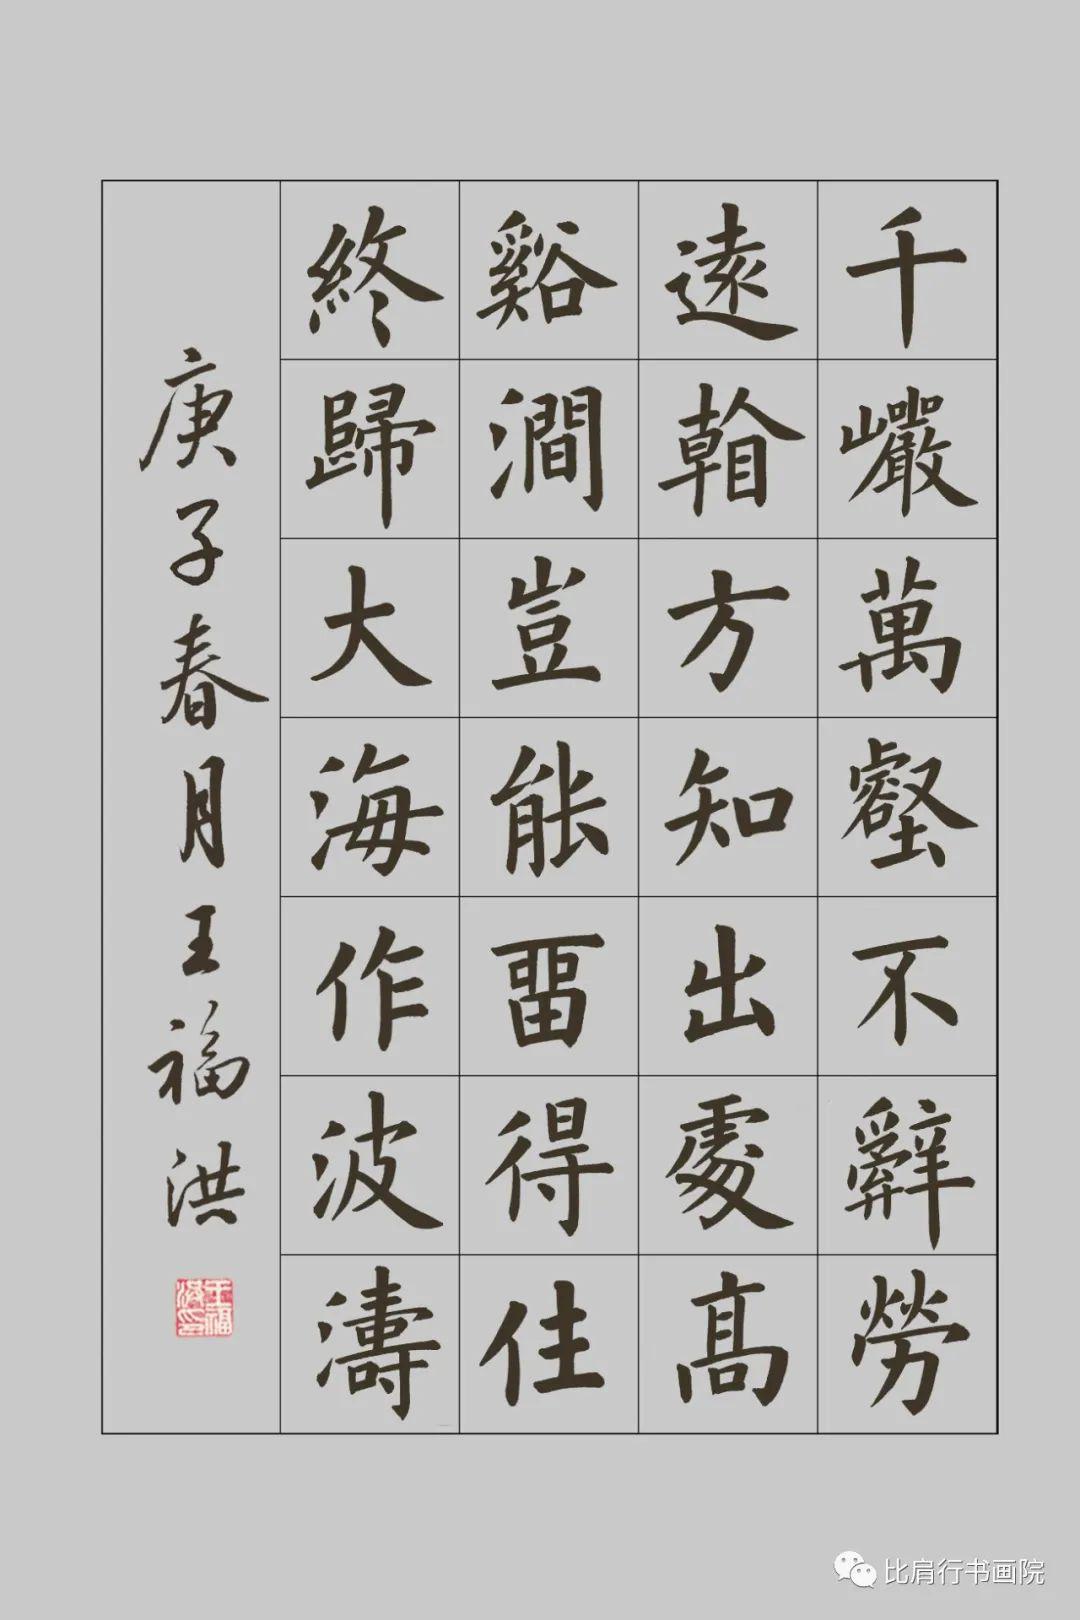 千巖萬壑不辭勞
遠看方知出處高
谿澗豈能留得住
終歸大海作波濤
庚子春月王福洪
王福洪印
比肩行书画院